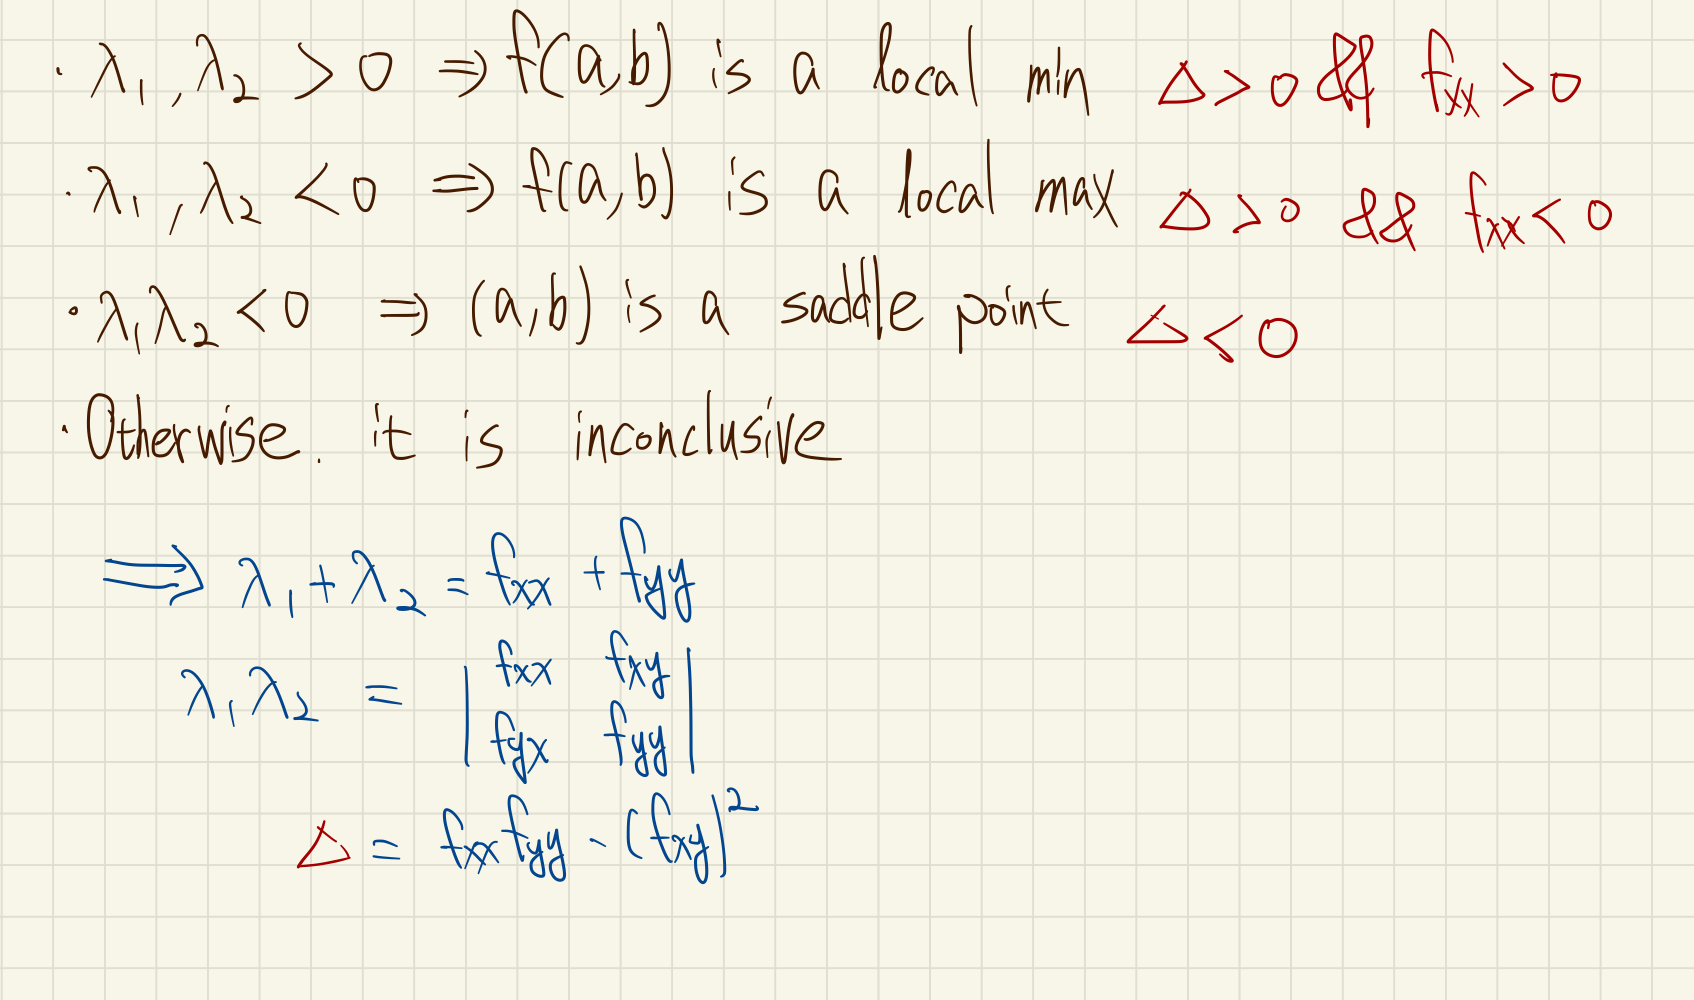 · λ₁, λ₂ > 0 ⇒ f(a,b) is a local min Δ > 0 && fxx > 0
· λ₁, λ₂ < 0 ⇒ f(a,b) is a local max Δ > 0 && fxx < 0
· λ₁λ₂ < 0 ⇒ (a,b) is a saddle point Δ < 0
· Otherwise. it is inconclusive
⟹ λ₁ + λ₂ = fxx + fyy
λ₁λ₂ = | fxx fxy |
| fyx fyy |
Δ = fxx fyy - (fxy)²